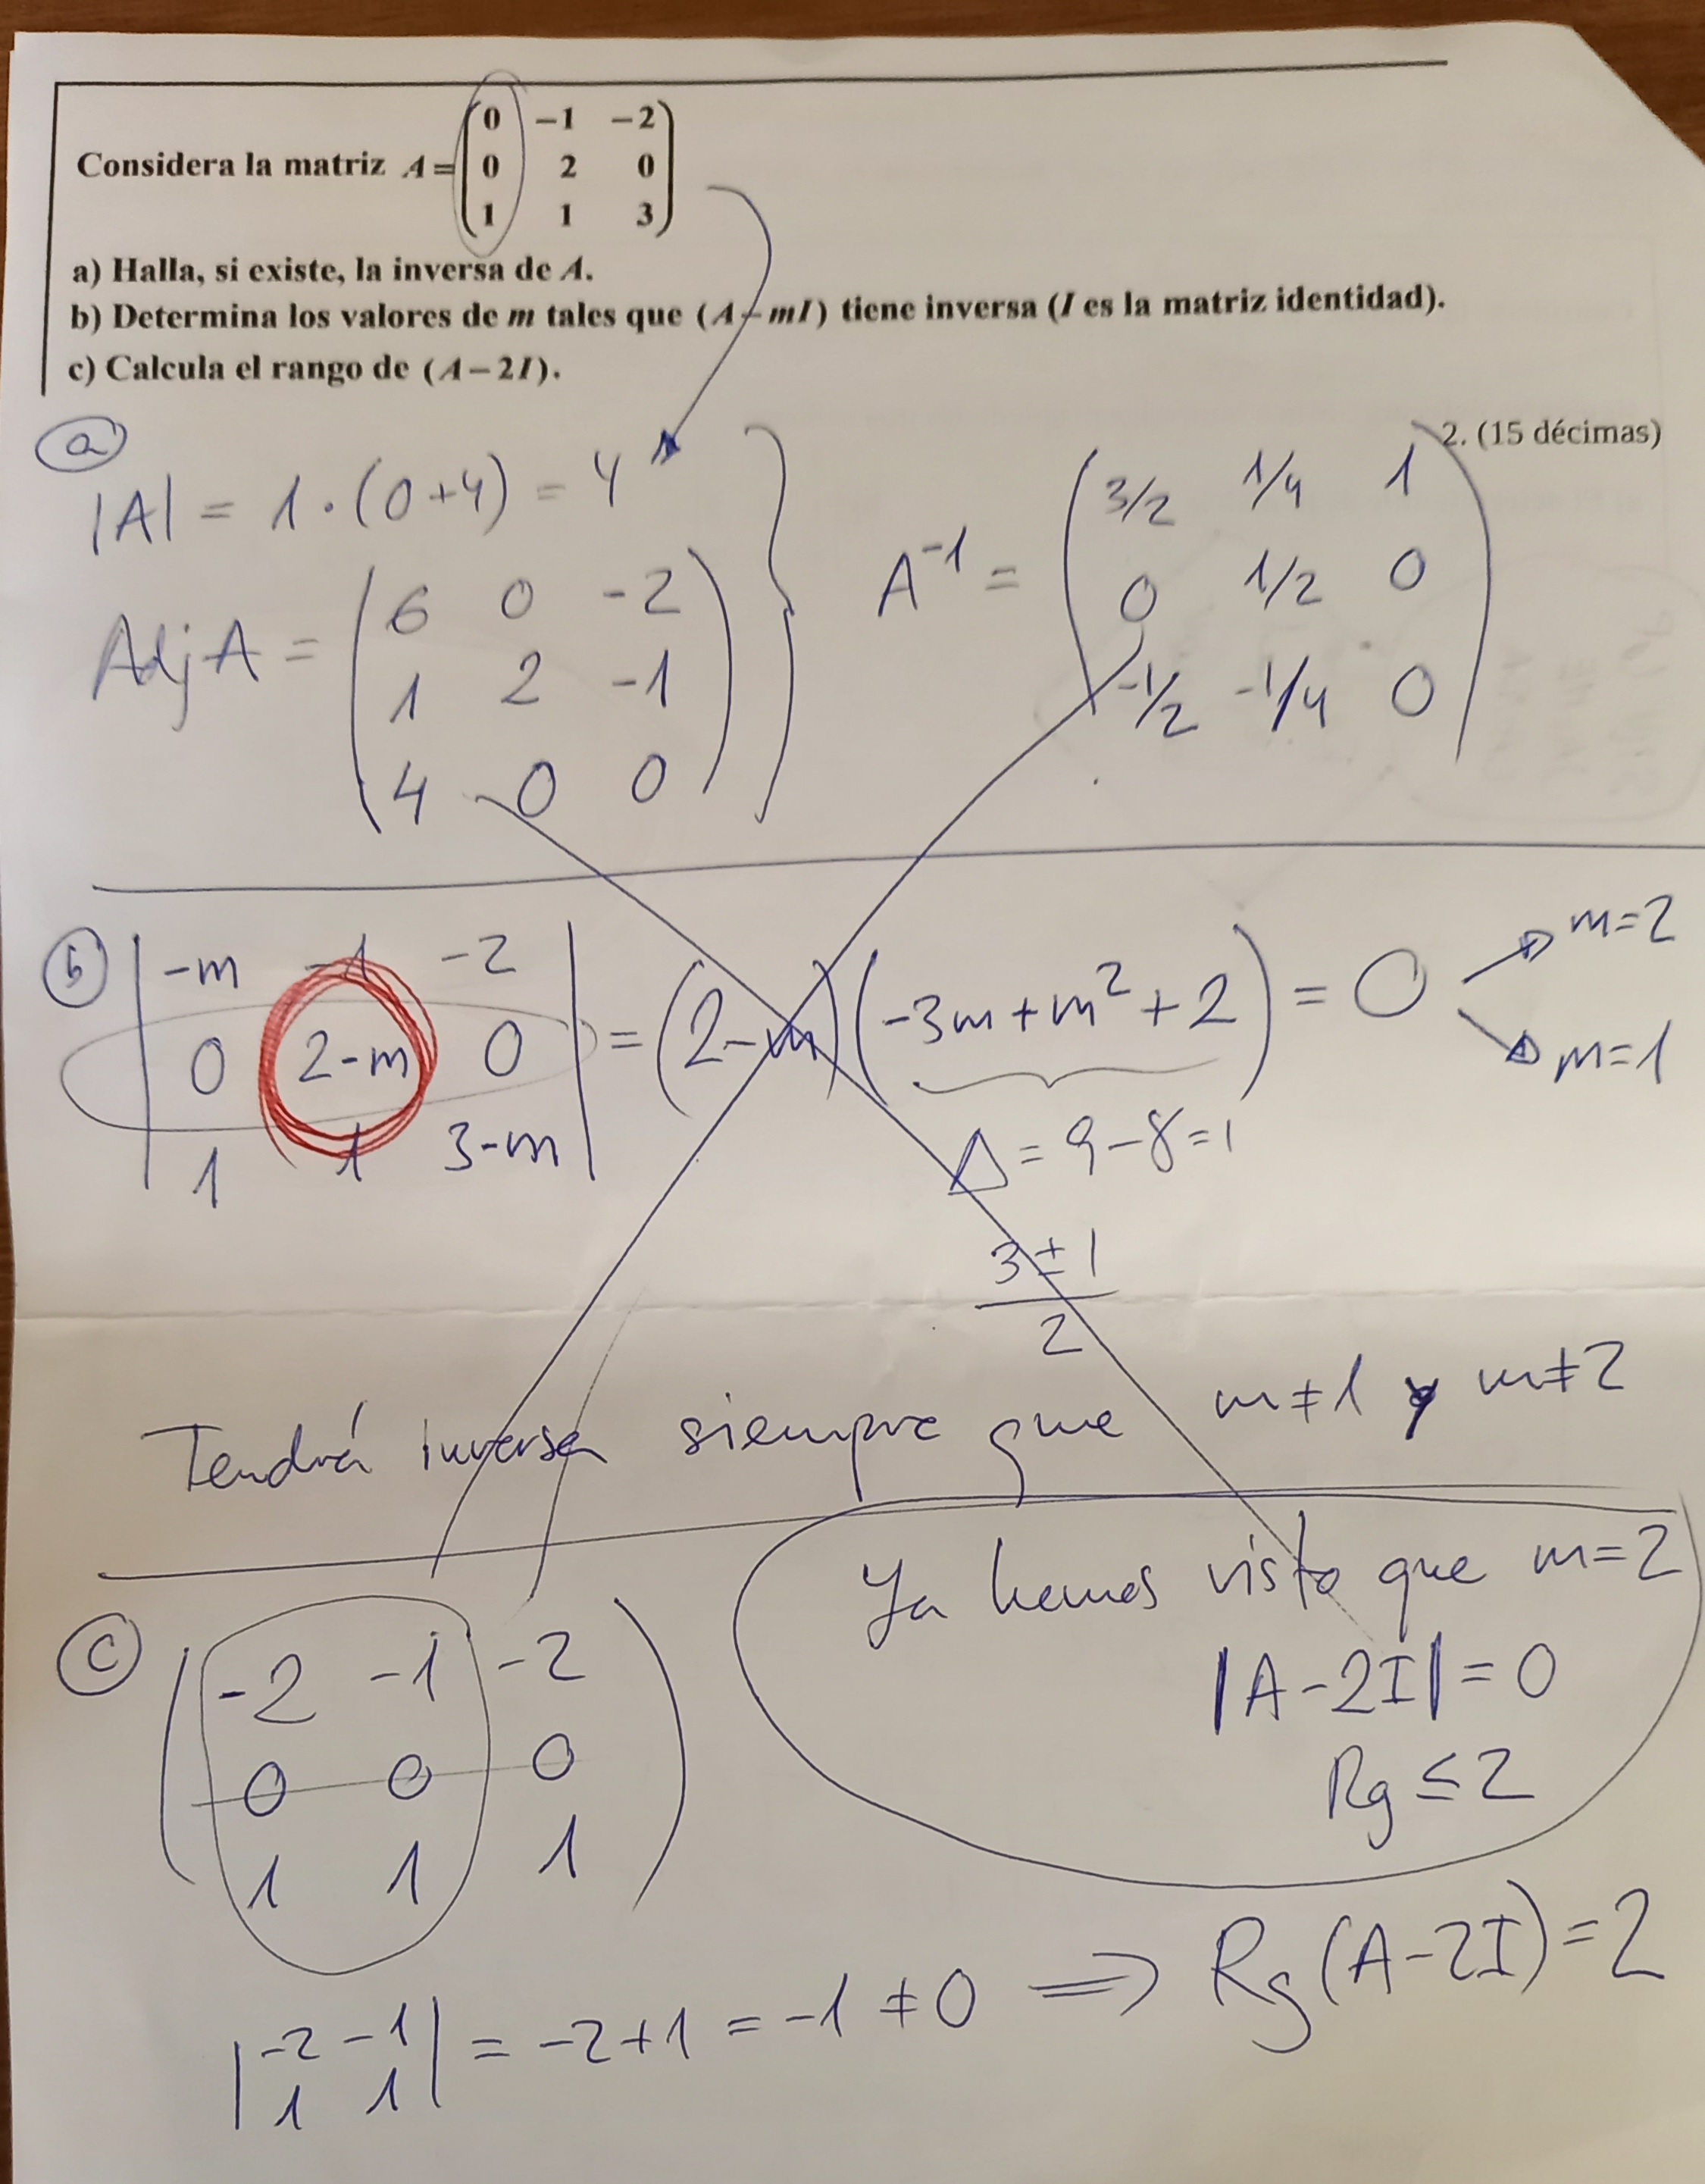 Considera la matriz A = (0 −1 −2
0 2 0
1 1 3)
a) Halla, si existe, la inversa de A.
b) Determina los valores de m tales que (A − mI) tiene inversa (I es la matriz identidad).
c) Calcula el rango de (A − 2I).
2. (15 décimas)
a
|A| = 1 · (0+4) = 4
Adj A = (6 0 -2
1 2 -1
4 0 0)
A⁻¹ = (3/2 1/4 1
0 1/2 0
-1/2 -1/4 0)
b |-m -1 -2
0 2-m 0
1 1 3-m| = (2-m)(-3m+m²+2) = 0
m=2
m=1
Δ = 9-8=1
3±1
2
Tendrá inversa siempre que m≠1 y m≠2
c (-2 -1 -2
0 0 0
1 1 1)
Ya hemos visto que m=2
|A-2I|=0
Rg ≤ 2
|-2 -1
1 1| = -2+1 = -1 ≠ 0 ⟹ Rg(A-2I)=2